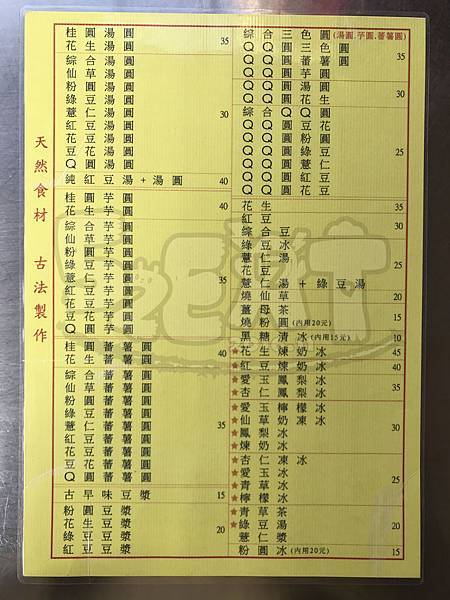 天然食材 古法製作
桂圓湯圓
花生湯圓 35
綜合湯圓
仙草湯圓
粉圓湯圓
綠豆湯圓
薏仁湯圓 30
紅豆湯圓
花豆湯圓
豆花湯圓
QQ圓湯圓
純紅豆湯+湯圓 40
桂圓芋圓
花生芋圓 40
綜合芋圓
仙草芋圓
粉圓芋圓
綠豆芋圓
薏仁芋圓 35
紅豆芋圓
花豆芋圓
豆花芋圓
QQ圓芋圓
桂圓蕃薯圓
花生蕃薯圓 40
綜合蕃薯圓
仙草蕃薯圓
粉圓蕃薯圓
綠豆蕃薯圓
薏仁蕃薯圓 35
紅豆蕃薯圓
花豆蕃薯圓
豆花蕃薯圓
QQ圓蕃薯圓
古早味豆漿 15
粉圓豆漿
花生豆漿
綠豆豆漿 20
紅豆豆漿
綜合三色圓(湯圓.芋圓.蕃薯圓)
35
30
25
花生 35
紅豆
30
綜合豆
綠豆冰
薏仁湯 25
花豆
薏仁湯+綠豆湯
燒仙草 20
薑母茶 15
燒粉圓(內用20元)
黑糖清冰(內用15元) 10
★花生煉奶冰 45
★紅豆煉奶冰 40
★愛玉鳳梨冰
★杏仁鳳梨冰 35
★愛玉檸檬冰
★仙草奶凍冰
★鳳梨冰 30
★煉奶冰
★杏仁凍冰
★愛玉冰
★青草冰 25
★檸檬冰
★青草茶
★綠豆湯 20
薏仁漿
粉圓冰(內用20元) 15